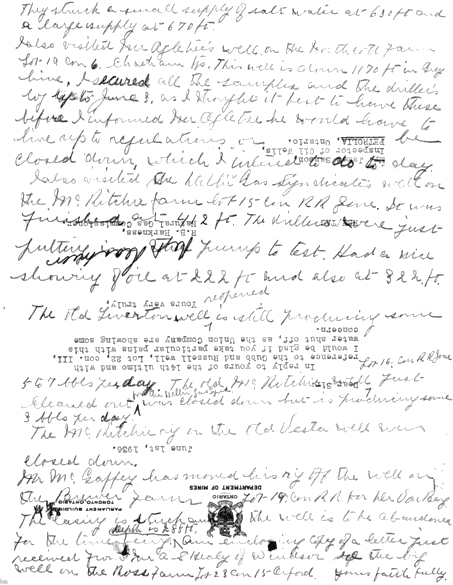 They struck a small supply of salt water at 630 ft and
a large supply at 670 ft.
I also visited Mr Ogletree's well on the Northcott Farm
Lot 19 Con 6. Chatham Tp. This well is down 1170 ft in grey
lime, I secured all the samples and the drillers
log up to June 3, as I thought it best to have these
before I informed Mr Ogletree he would have to
live up to regulations or be
PETROLIA, Ontario.
Inspector of Oil Wells,
closed down, which I intend to do to day.
I also visited the Gas Syndicate's well on
the Mc Ritchie farm Lot 15 con R R Zone. It was
finished at 412 ft. The drillers were just
Natural Gas Commissioner
R.B. Harkness,
putting pump to test. Had a nice
showing of oil at 222 ft and also at 322 ft.
Yours very truly,
reopened
The Old Liverton well is still producing some
concern.
water shut off, as the Union Company are showing some
I would be glad if you take particular pains with this
reference to the Gubb and Russell well, Lot 22, con. III,
In reply to yours of the 14th ultimo and with
Lot 16, Con R R Zone
5 to 7 bbls per day. The old Mc Ritchie well just
Dear Sir:
cleaned out was closed down but is producing some
3 bbls per day.
The McRitchie rig on the old Vesta well was
June 1st, 1936.
closed down.
Mr Mc Gaffey has moved his rig off the well on
DEPARTMENT OF MINES
the Brewer Farm Lot 19 Con R R for
ONTARIO
PARLIAMENT BUILDINGS
TORONTO, ONTARIO
The casing is stuck and the well is to be abandoned
depth is 255 ft
for the time being. Am enclosing copy of a letter just
received from Mr A S Healy of Windsor re the big
well on the Ross Farm Lot 23 con 15 Orford. Yours faithfully,